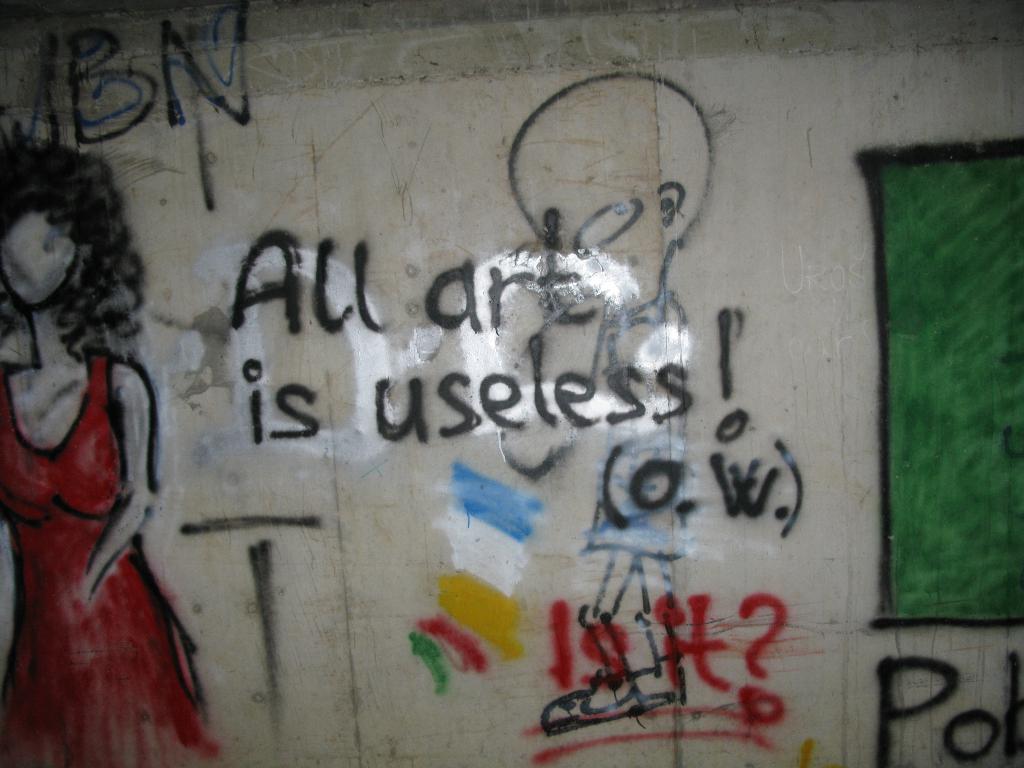 JBN
All art
is useless!
(O.W.)
Is it?